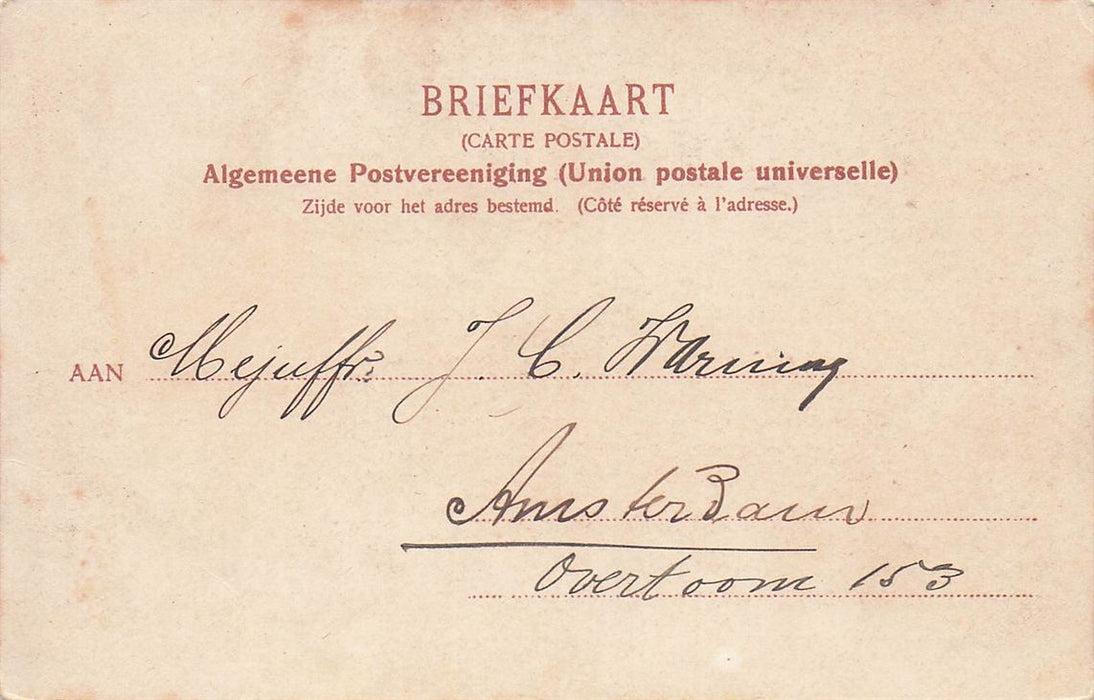 BRIEFKAART
(CARTE POSTALE)
Algemeene Postvereeniging (Union postale universelle)
Zijde voor het adres bestemd. (Côté réservé à l'adresse.)
AAN Mejuffr. J. C. Warning
Amsterdam
Overtoom 153